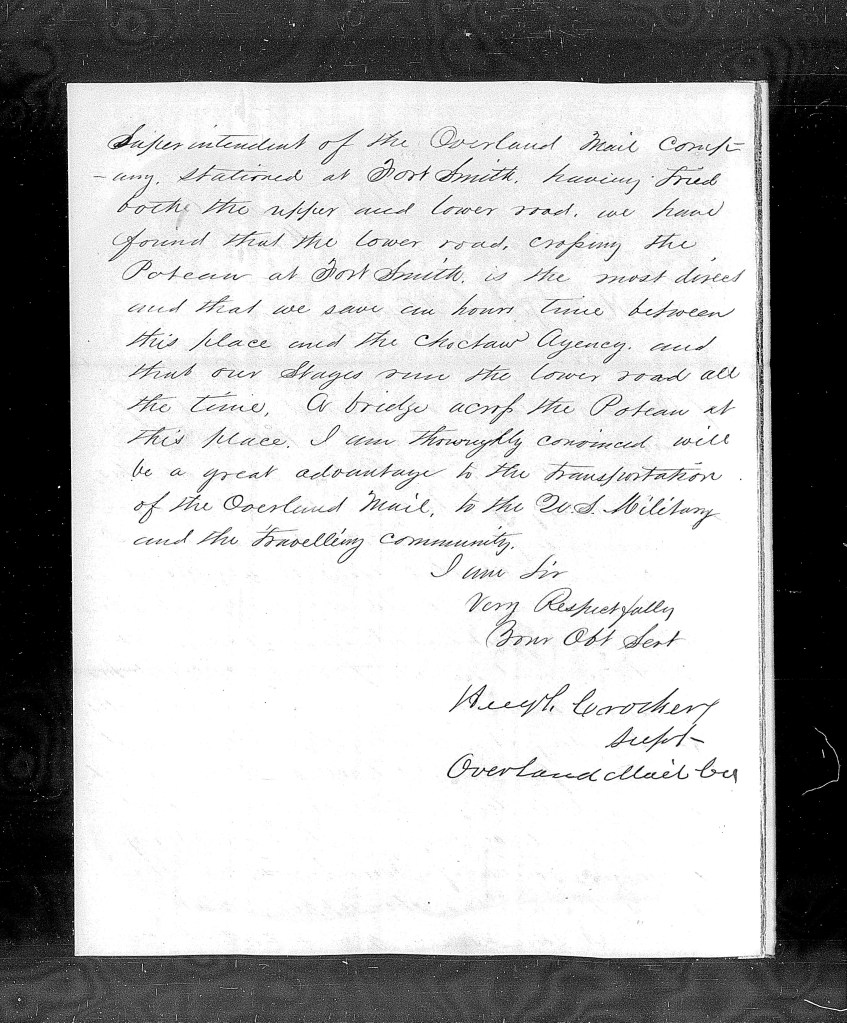 Superintendent of the Overland Mail comp-
-any, stationed at Fort Smith, having tried
both the upper and lower road, we have
found that the lower road, crossing the
Poteau at Fort Smith, is the most direct
and that we save an hours time between
this place and the Choctaw Agency, and
that our Stages run the lower road all
the time, A bridge across the Poteau at
this place, I am thoroughly convinced will
be a great advantage to the transportation
of the Overland Mail, to the U.S. Military
and the travelling community.
I am Sir
Very Respectfully
Your Obt Servt
Hugh Crocker
Supt
Overland Mail Co